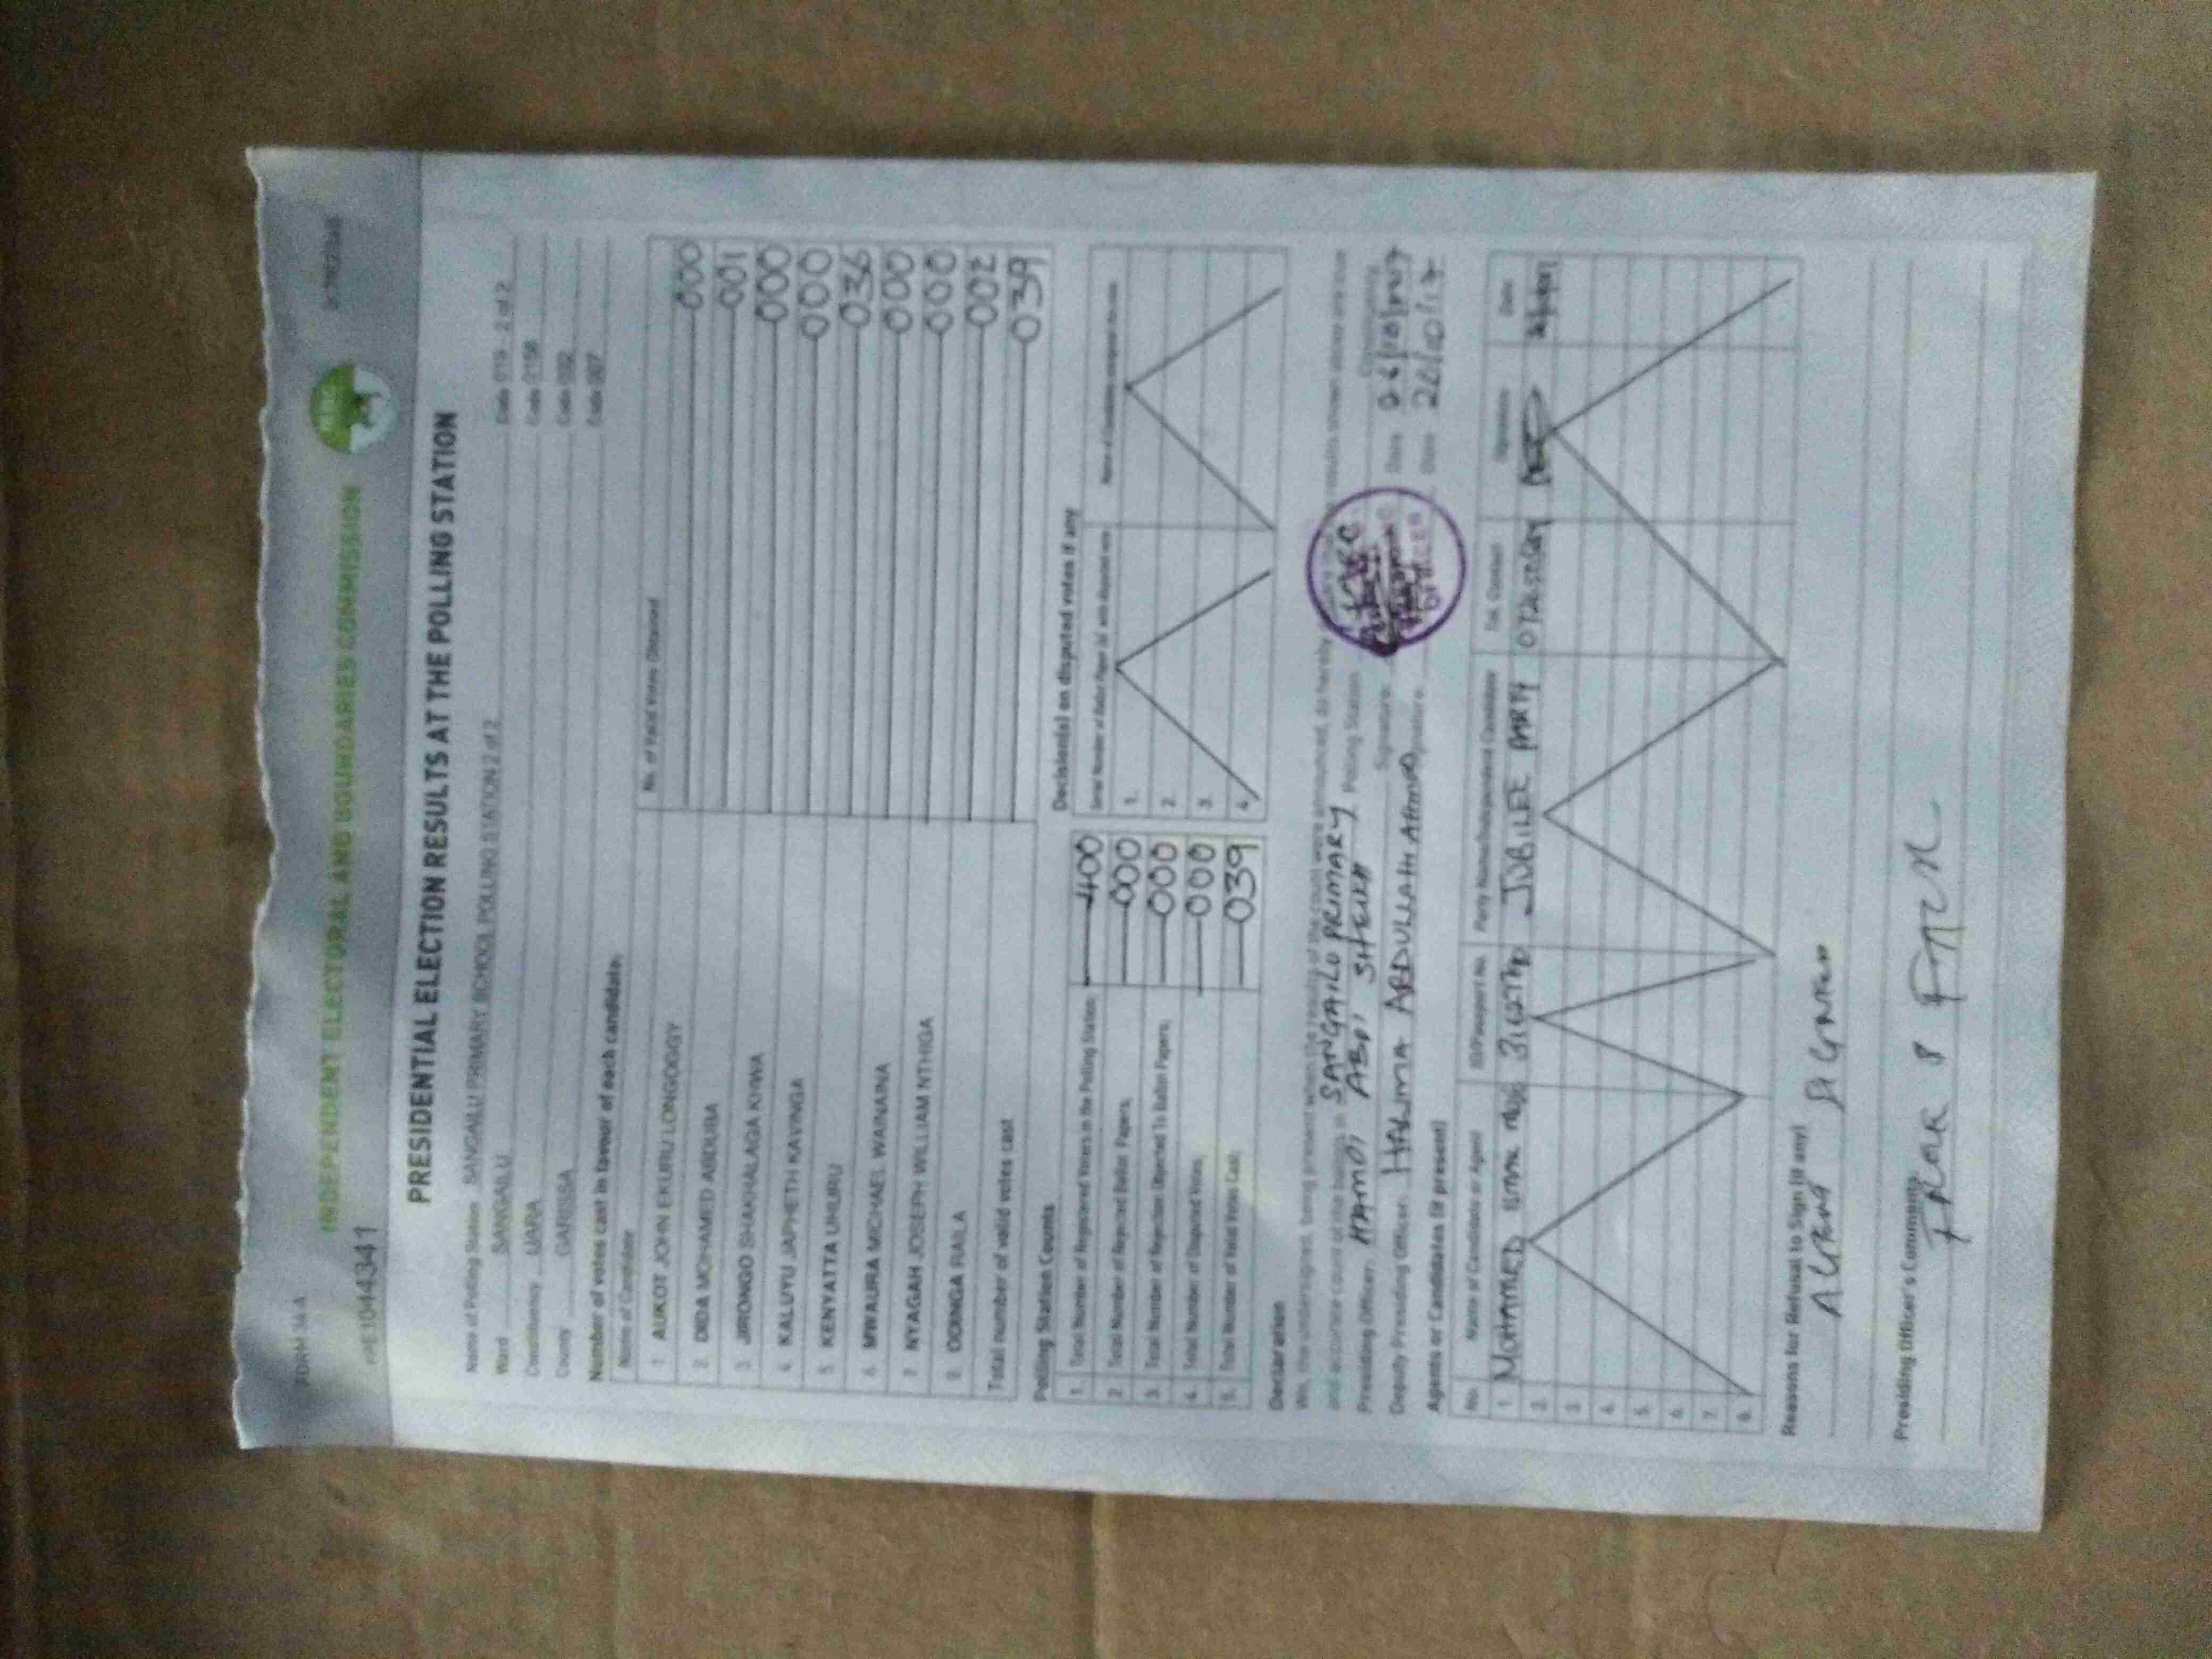 FORM 34A
INDEPENDENT ELECTORAL AND BOUNDARIES COMMISSION
PRESIDENTIAL ELECTION RESULTS AT THE POLLING STATION
Name of Polling Station SANGAILU PRIMARY SCHOOL POLLING STATION 2 of 2 Code 019 - 2 of 2
Ward SANGAILU Code 0156
Constituency IJARA Code 032
County GARISSA Code 007
Number of votes cast in favour of each candidate:
Name of Candidate No. of Valid Votes Obtained
1 AUKOT JOHN EKURU LONGOGGY 000
2. DIDA MOHAMED ABDUBA 001
3 JIRONGO SHAKHALAGA KHWA 000
4 KALUYU JAPHETH KAVINGA 000
5 KENYATTA UHURU 036
6 MWAURA MICHAEL WAINAINA 000
7 NYAGAH JOSEPH WILLIAM NTHIGA 000
8 ODINGA RAILA 002
Total number of valid votes cast 039
Polling Station Counts
1. Total Number of Registered Voters in the Polling Station 400
2. Total Number of Rejected Ballot Papers 000
3. Total Number of Rejection Objected To Ballot Papers 000
4. Total Number of Disputed Votes 000
5. Total Number of Valid Votes Cast 039
Decision(s) on disputed votes if any
1.
2.
3.
4.
Declaration
We, the undersigned, being present when the results of the count were announced, do hereby
SANGAILU PRIMARY Polling Station
Presiding Officer: HAMDI ABDI SHEIKH Signature: Date
Deputy Presiding Officer: HALIMA ABDULLAHI AHMED Signature: Date
Agents or Candidates (if present)
No. Name of Candidate or Agent ID/Passport No. Party Name/Independent Candidate Tel. Contact Signature Date
1. MOHAMED JUBILEE PARTY
2.
3.
4.
5.
6.
7.
8.
Reasons for Refusal to Sign (if any)
AGENT SIGNED
Presiding Officer's Comments